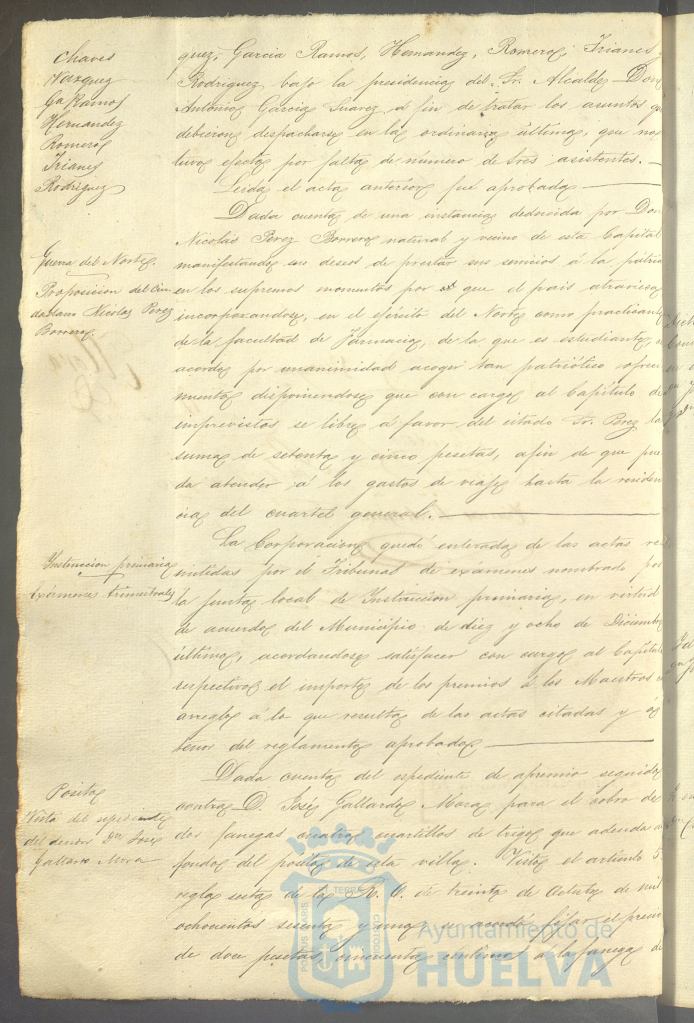 Chaves
Vazquez
Ga Ramos
Hernandez
Romero
Trianes
Rodriguez
quez, Garcia Ramos, Hernandez, Romero, Trianes y
Rodriguez bajo la presidencia del Sr. Alcalde Don
Antonio Garcia Suarez, a fin de tratar los asuntos q
debieron despacharse en la ordinaria última, que no
tuvo efecto por falta de número de tres asistentes.
Leida el acta anterior fué aprobada
Guerra del Norte.
Proposicion del Ciu
dadano Nicolas Perez
Borrero.
Dada cuenta de una instancia deducida por Don
Nicolás Perez Borrero natural y vecino de esta Capital
manifestando sus deseos de prestar sus servicios á la pátria
en los supremos momentos por que el pais atraviesa
incorporandose, en el ejército del Norte como practicante
de la facultad de Farmacia, de la que es estudiante, se
acordó por unanimidad acoger tan patriótico ofreci
miento disponiendose que con cargo al Capítulo de
imprevistos se libre á favor del citado Sr. Perez la
suma de setenta y cinco pesetas, afin de que pue
da atender á los gastos de viaje hasta la residen
cia del cuartel general.
Instruccion primaria
Exámenes trimestrales
La Corporacion quedó enterada de las actas re
mitidas por el Tribunal de exámenes nombrado por
la Junta local de Instruccion primaria, en virtud
de acuerdo del Municipio de diez y ocho de Diciembre
último, acordandose satisfacer con cargo al Capítulo
respectivo el importe de los premios á los Maestros
arreglo á lo que resulta de las actas citadas y á
tenor del reglamento aprobado
Posito
Vista del espediente
del deudor Dn Jose
Gallardo Mora
Dada cuenta del espediente de apremio seguido
contra D. José Gallardo Mora para el cobro de
dos fanegas cuatro cuartillos de trigo que adeuda a
fondos del posito de esta villa. Visto el artículo 5
regla sesta de la R. O. de treinta de de mil
ochocientos sesenta y uno, se acordó fijar el precio
de doce pesetas, cincuenta centimos á la fanega de
Ayuntamiento de
HUELVA